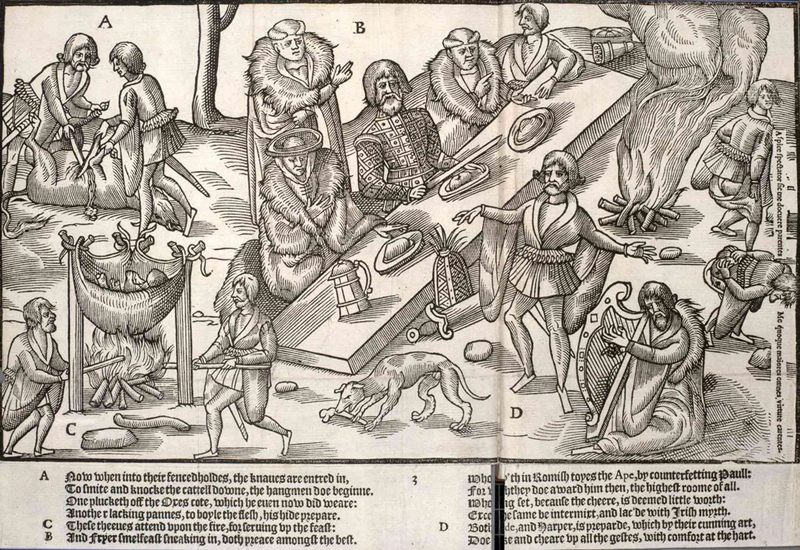 A
B
C
D
Aspice spectator sic me docuere parentes
Me quoque maiores omnes, virtute carentes.
A Now when into their fencedholdes, the knaues are entred in,
To smite and knocke the cattell downe, the hangmen doe beginne.
One plucketh off the Oxes cote, which he euen now did weare:
Another lacking pannes, to boyle the flesh, his hide prepare.
C These theeues attend vpon the fire, for seruing vp the feast:
B And Fryer smelfeast sneaking in, doth preace amongst the best.
3 in Romish toyes the Ape, by counterfetting Paull:
For they doe award him then, the highest roome of all.
Who set, because the cheere, is deemed little worth:
same be intermixt, and lac'de with Irish myrth.
D and Harper, is preparde, which by their cunning art,
Doe and cheare vp all the gestes, with comfort at the hart.